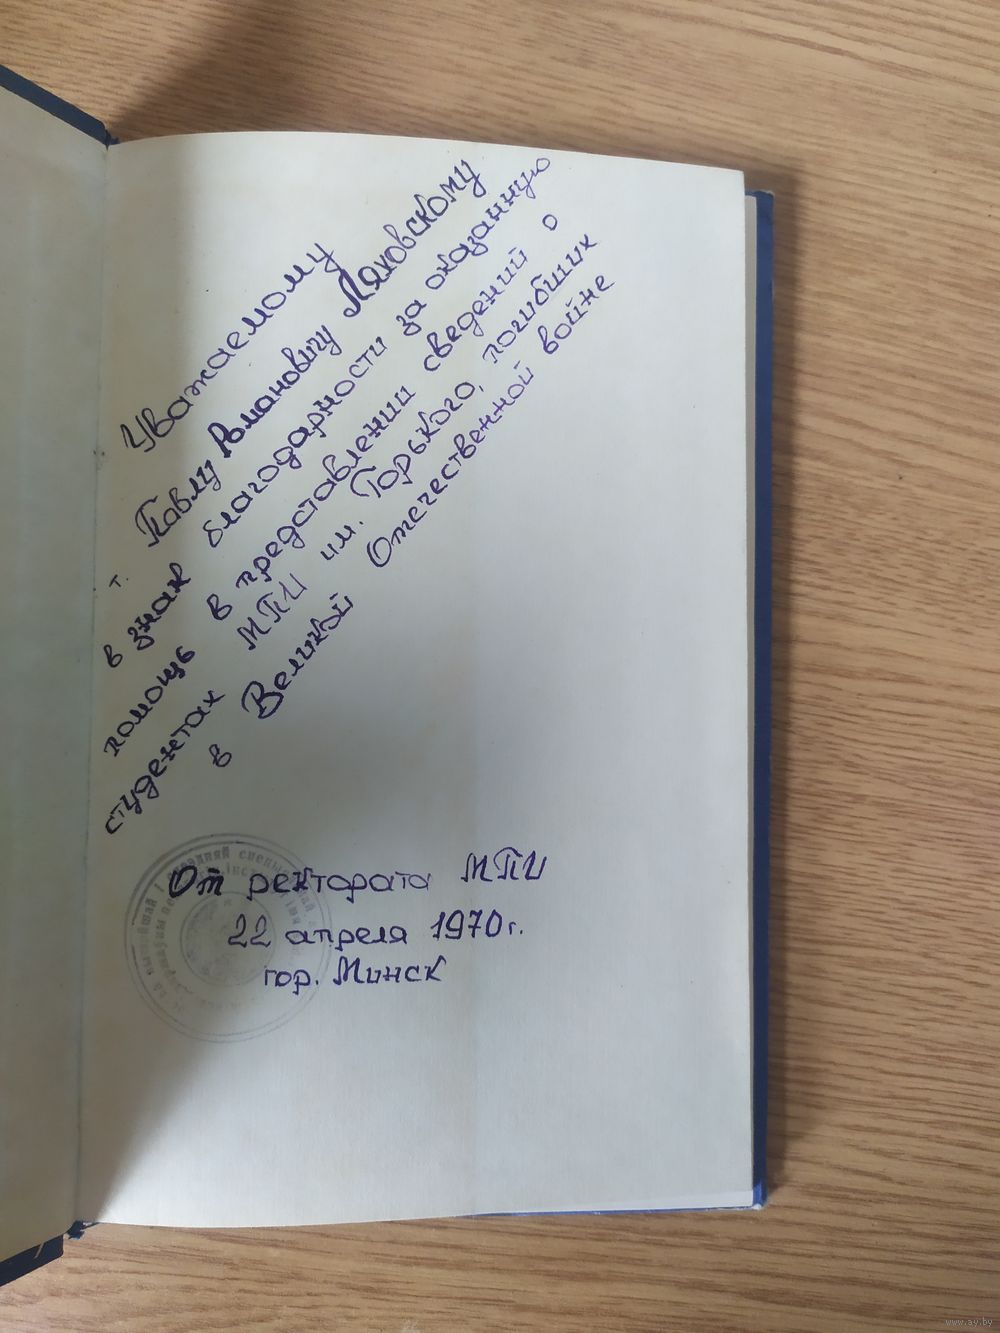 Уважаемому
т. Павлу Романовичу Ляховскому
в знак благодарности за оказанную
помощь в представлении сведений о
студентах МПИ им. Горького, погибших
в Великой Отечественной войне
От ректората МПИ
22 апреля 1970г.
гор. Минск
www.ay.by